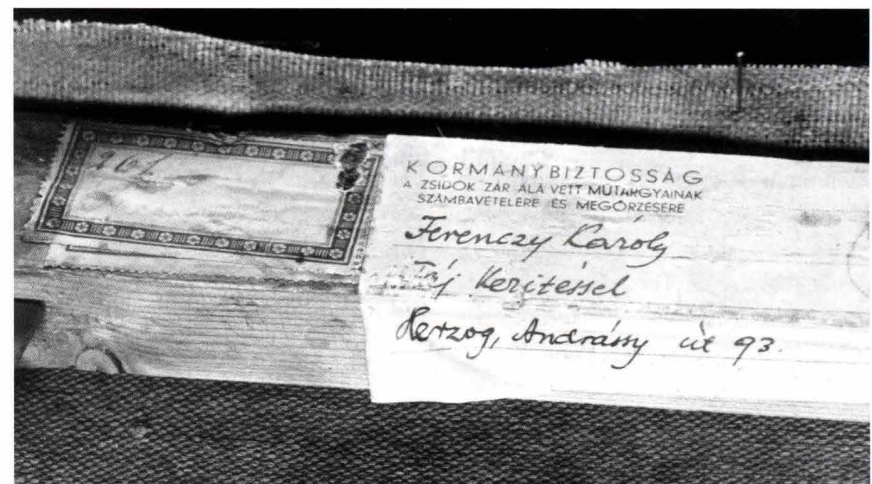 261
KORMÁNYBIZTOSSÁG
A ZSIDÓK ZÁR ALÁ VETT MŰTÁRGYAINAK
SZÁMBAVÉTELÉRE ÉS MEGŐRZÉSÉRE
Ferenczy Károly
Táj Kerítéssel
Herzog, Andrássy út 93.